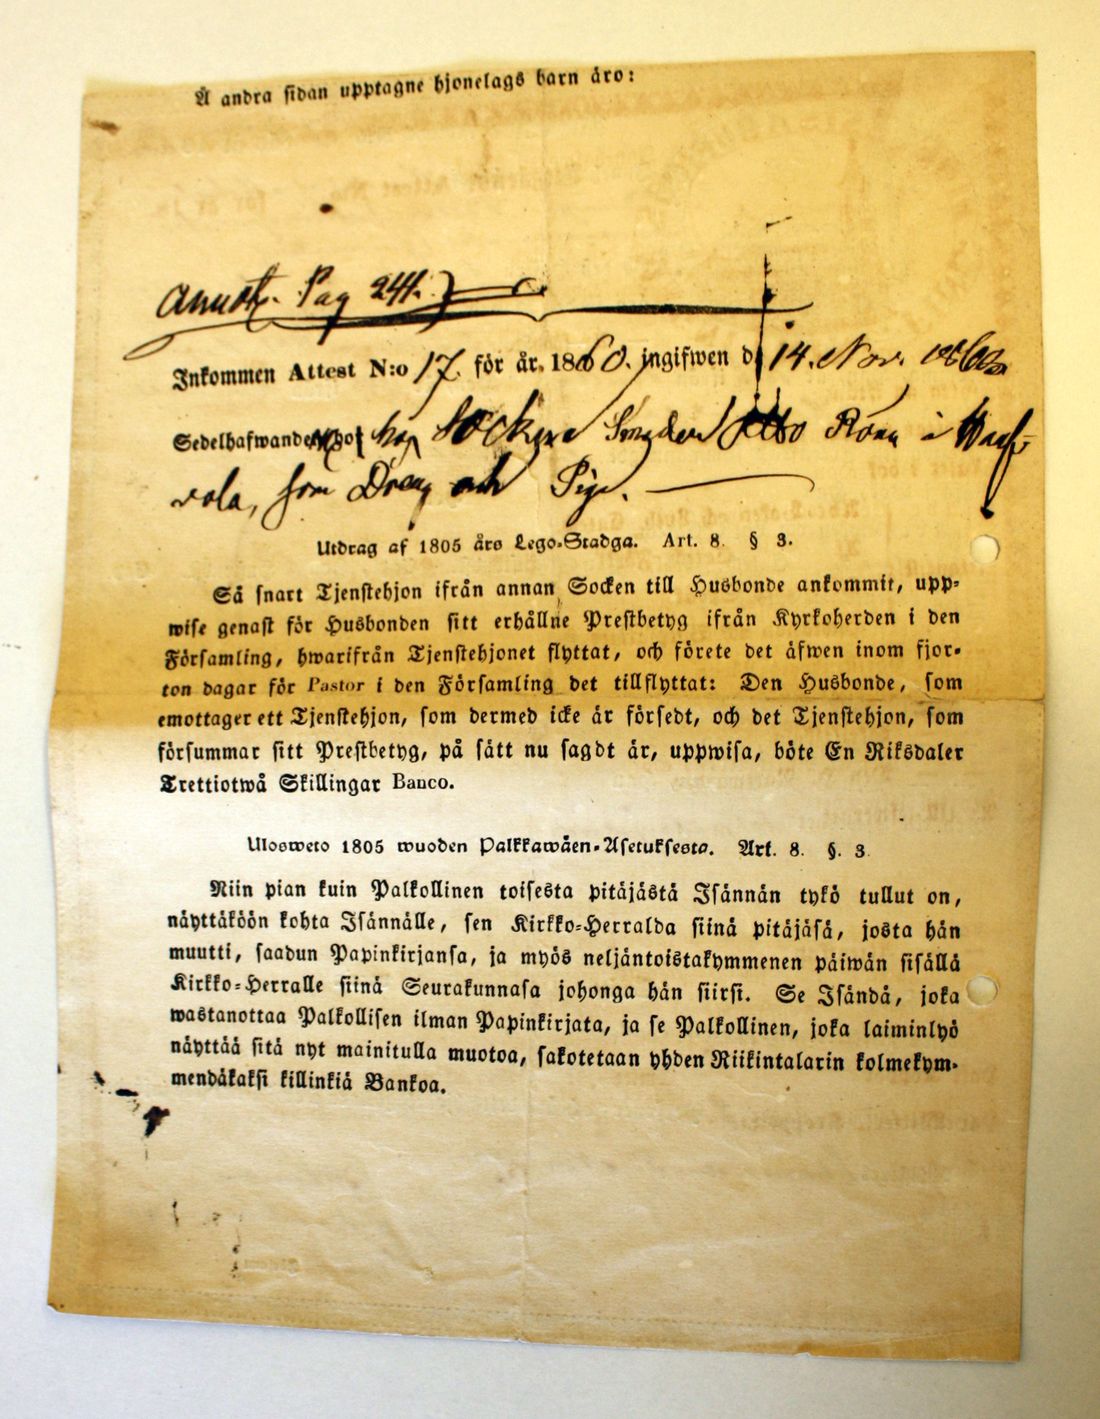 Å andra sidan upptagne hjonelags barn äro:
Pag 241.
Inkommen Attest N:o 17. för år 1860. ingifwen d 14. Nov. 1860
Sedelhafwande hos Sockne Otto i
vola, som Dreng och Piga.
Utdrag af 1805 års Lego-Stadga. Art. 8. § 3.
Så snart Tjenstehjon ifrån annan Socken till Husbonde ankommit, upp-
wise genast för Husbonden sitt erhållne Prestbetyg ifrån Kyrkoherden i den
Församling, hwarifrån Tjenstehjonet flyttat, och förete det äfwen inom fjor-
ton dagar för Pastor i den Församling det tillflyttat: Den Husbonde, som
emottager ett Tjenstehjon, som dermed icke är försedt, och det Tjenstehjon, som
försummar sitt Prestbetyg, på sätt nu sagdt är, uppwisa, böte En Riksdaler
Trettiotwå Skillingar Banco.
Ulosweto 1805 wuoden Palkkawäen-Asetuksesta. Art. 8. §. 3.
Niin pian kuin Palkollinen toisesta pitäjästä Isännän tykö tullut on,
näyttäköön kohta Isännälle, sen Kirkko-Herralda siinä pitäjäsä, josta hän
muutti, saadun Papinkirjansa, ja myös neljäntoistakymmenen päiwän sisällä
Kirkko-Herralle siinä Seurakunnasa johonga hän siirsi. Se Isändä, joka
wastanottaa Palkollisen ilman Papinkirjata, ja se Palkollinen, joka laiminlyö
näyttää sitä nyt mainitulla muotoa, sakotetaan yhden Riikintalarin kolmekym-
mendäkaksi killinkiä Bankoa.